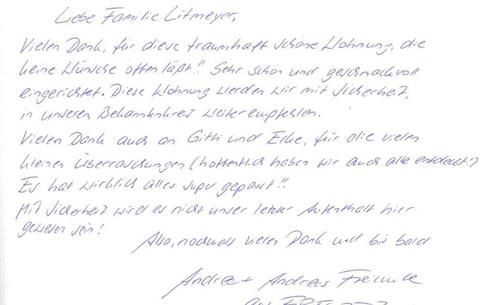 Liebe Familie Litmeyer,
Vielen Dank, für diese traumhaft schöne Wohnung, die
keine Wünsche offen läßt!! Sehr schön und geschmackvoll
eingerichtet. Diese Wohnung werden wir mit Sicherheit,
in unseren Bekanntenkreis weiterempfehlen.
Vielen Dank auch an Gitti und Elke, für die vielen
kleinen Überraschungen (hoffentlich haben wir auch alle entdeckt!)
Es hat wirklich alles super gepasst!!
Mit Sicherheit wird es nicht unser letzter Aufenthalt hier
gewesen sein!
Also, nochmals vielen Dank und bis bald
Andrea + Andreas